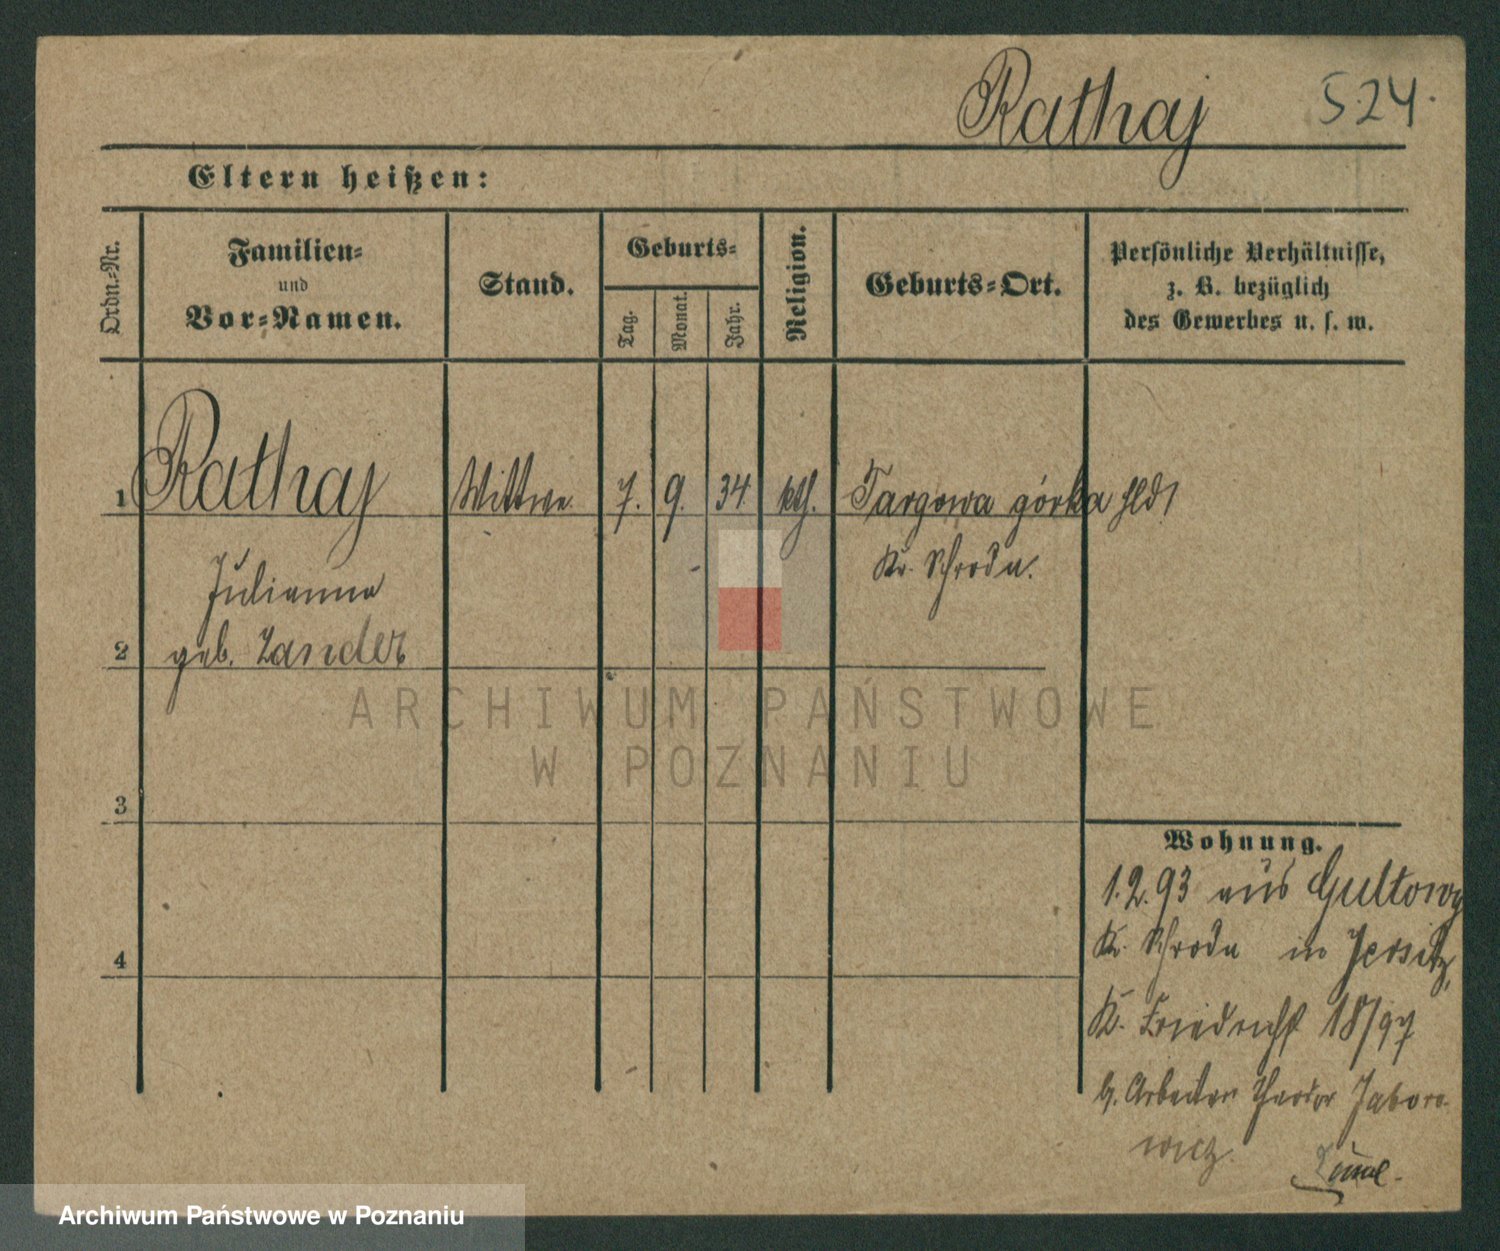 Rathaj 524.
Eltern heißen:
Ordn.-Nr.
Familien-
und
Vor-Namen.
Stand.
Geburts-
Tag.
Monat.
Jahr.
Religion.
Geburts-Ort.
Persönliche Verhältnisse,
z. B. bezüglich
des Gewerbes u. s. w.
1 Rathaj Wittwe 7. 9. 34 kth. Targowa górka
Kr. Schroda.
Julianna
2 geb. Zander
3
4
Wohnung.
1.2.93 aus Gultowy
Kr. Schroda in Jersitz,
18/97
b. Arbeiter Theodor Jaboro-
wicz.
ARCHIWUM PAŃSTWOWE
W POZNANIU
Archiwum Państwowe w Poznaniu